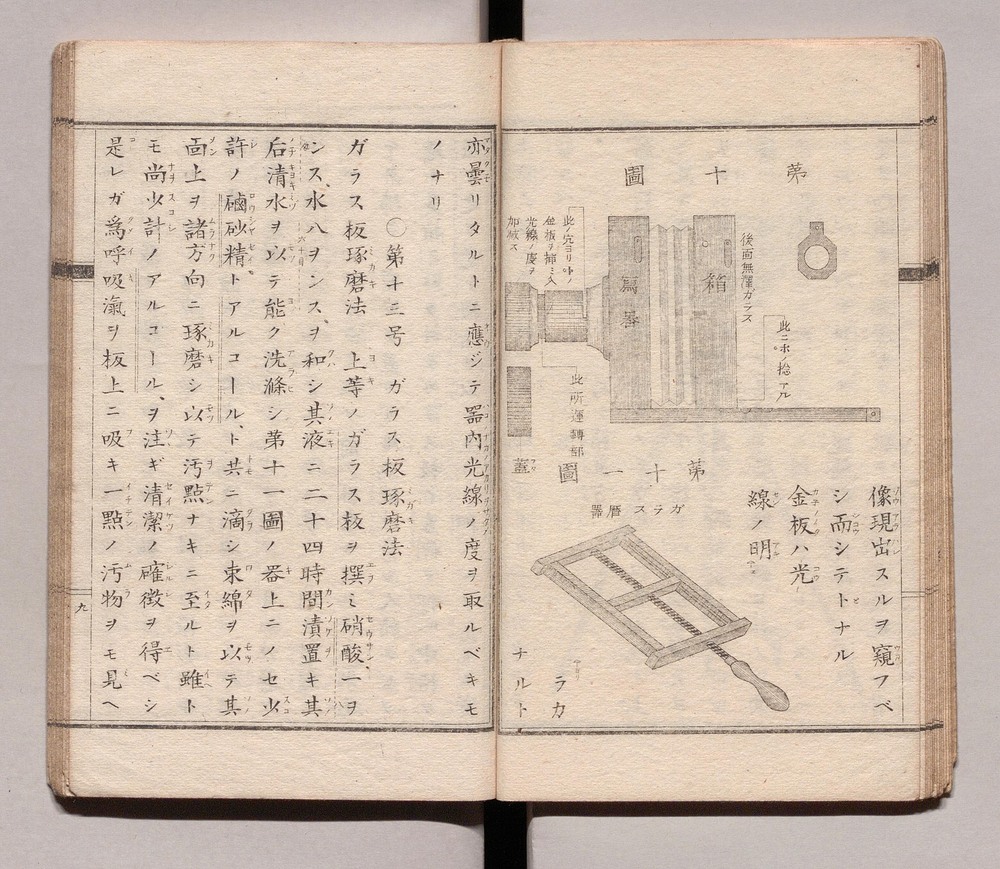 第十圖
後面無渾ガラス
此ニホノ捻アル
箱
寫器
此ノ穴ヨリ小ノ
金板ヲ挿ミ入
光線ノ度ヲ
加减ス
此所運轉部
蓋
第十一圖
ガラス暦器
像現出スルヲ窺フベ
シ而シテトナル
金板ハ光
線ノ明
ラカ
ナルト
亦曇リタルトニ應ジテ器内光線ノ度ヲ取ルベキモ
ノナリ
〇第十三号 ガラス板琢磨法
ガラス板琢磨法 上等ノガラス板ヲ撰ミ硝酸一ヲ
ンス、水八ヲンス、ヲ和シ其液ニ二十四時間漬置キ其
后清水ヲ以テ能ク洗滌シ第十一圖ノ器上ニノセ少
許ノ礀砂精トアルコール、ト共ニ滴シ束綿ヲ以テ其
面上ヲ諸方向ニ琢磨シ以テ汚點ナキニ至ルト雖ト
モ尚少計ノアルコール、ヲ注ギ清潔ノ確徴ヲ得ベシ
是レガ爲呼吸氣ヲ板上ニ吸キ一點ノ汚物ヲモ見ヘ
九